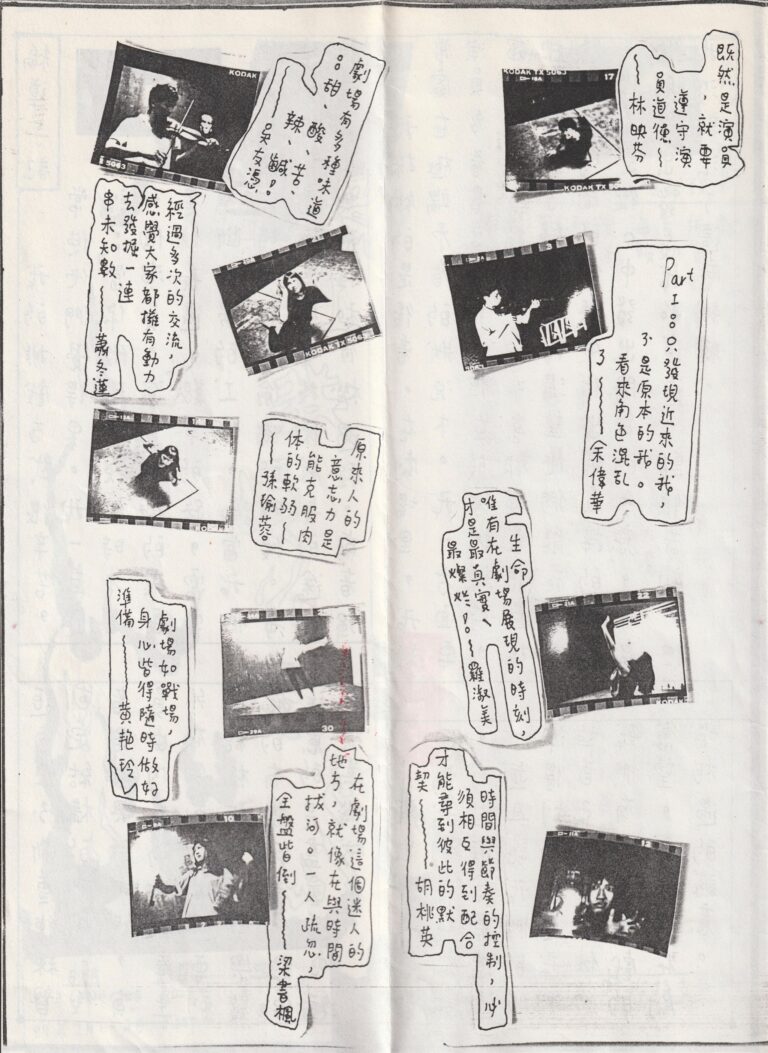 既然是演員
，就要
遵守演
員道德～
～林映芬
KODAK TX 5063
17
KODAK TX
Part I：只發現近來的我，
不是原本的我。
看來角色混亂
了～余偉華
3
生命
唯有在劇場展現的時刻，
才是最真實、
最燦爛！～羅淑美
22
KODAK
時間與節奏的控制，必
須相互得到配合
才能尋到彼此的默
契～胡桃英
12
劇場有多種味道
：甜、酸、苦、
辣、鹹！
～吳友憑
KODAK
5063
經過多次的交流，
感覺大家都擁有動力
去發掘一連
串未知數～蕭冬蓮
KODAK TX 5063
原來人的
意志力是
能克服肉
体的軟弱～
～孫瑜蓉
劇場如戰場，
身心皆得隨時做好
準備～黃艷玲
30
在劇場這個迷人的
地方，就像在與時間
拔河。一人疏忽，
全盤皆倒～梁書楓
10